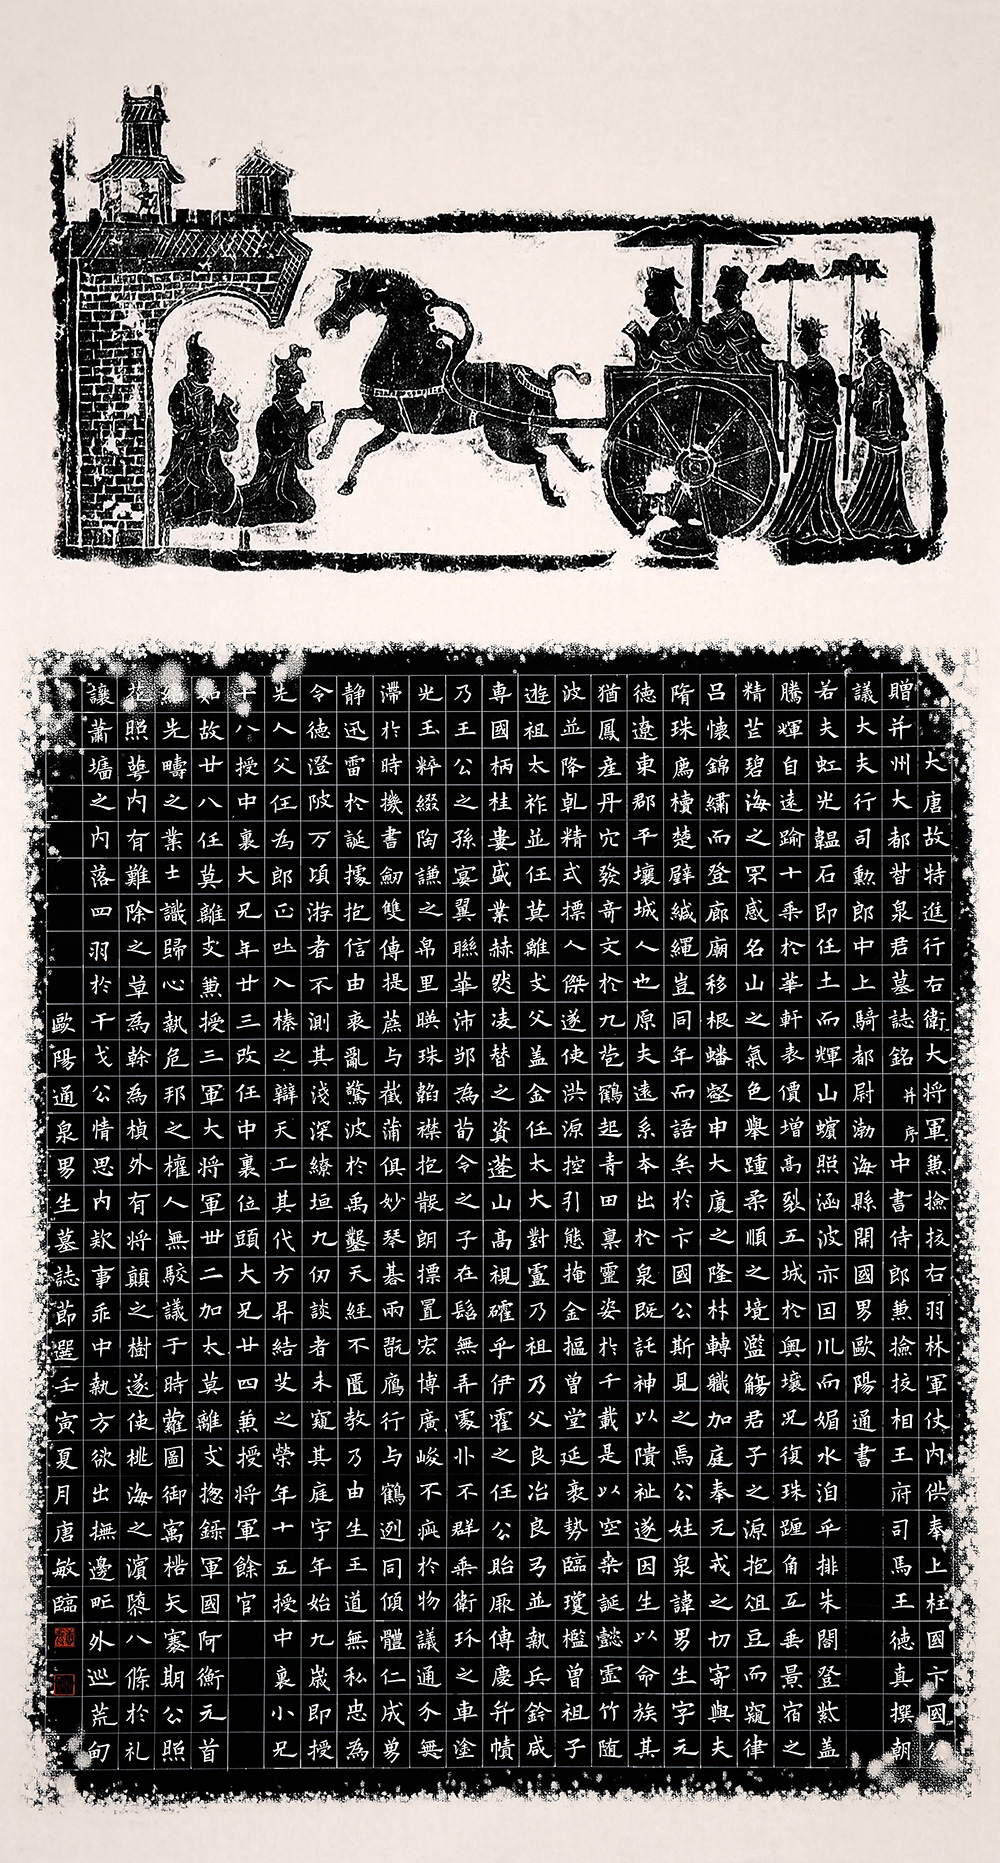 大唐故特進行右衛大将軍兼撿挍右羽林軍仗内供奉上柱國卞國公
贈并州大都督泉君墓誌銘并序中書侍郎兼撿挍相王府司馬王德真撰朝
議大夫行司勳郎中上騎都尉渤海縣開國男歐陽通書
若夫虹光韞石即任土而輝山蠙照涵波亦因川而媚水洎乎排朱閣登紫盖
騰輝自遠踰十乘於華軒表價增高裂五城於輿壤况復珠躔角互垂景宿之
精芒碧海之罘感名山之氣色舉踵柔順之境濫觴君子之源抱俎豆而窺律
呂懷錦繡而登廊廟移根蟠壑申大廈之隆林轉職加庭奉元戎之切寄與夫
隋珠廌櫝楚璧緘繩豈同年而語矣於卞國公斯見之焉公姓泉諱男生字元
德遼東郡平壤城人也原夫遠系本出於泉既託神以隤祉遂因生以命族其
猶鳳產丹穴發奇文於九苞鶴起青田稟靈姿於千載是以空桑誕懿虛竹随
波並降乹精式摽人傑遂使洪源控引態掩金摳曾堂延袤勢臨瓊檻曾祖子
遊祖太祚並任莫離支父盖金任太大對盧乃祖乃父良冶良弓並執兵鈐咸
專國柄桂婁盛業赫然凌替之資蓬山高視確乎伊霍之任公貽厥傳慶弁幘
乃王公之孫宴翼聯華沛邺為荀令之子在髫無弄處丱不群乘衛玠之車塗
光玉粹綴陶謙之帛里暎珠韜襟抱散朗摽置宏博廣峻不疵於物議通介無
滯於時機書劒雙傳提蔗与截蒲俱妙琴碁兩翫鴈行与鶴迾同傾體仁成勇
静迅雷於誕據抱信由衷亂驚波於禹鑿天經不匱教乃由生王道無私忠為
令德澄陂万頃游者不測其淺深繚垣九仞談者未窺其庭宇年始九歲即授
先人父任為郎正吐入榛之辯天工其代方昇結艾之榮年十五授中裏小兄
十八授中裏大兄年廿三改任中裏位頭大兄廿四兼授将軍餘官
如故廿八任莫離支兼授三軍大将軍卅二加太莫離支揔錄軍國阿衡元首
紹先疇之業士識歸心執危邦之權人無駮議于時蘿圖御寓楛矢褰期公照
花照萼内有難除之草為幹為楨外有将顛之樹遂使桃海之濱隳八條於礼
讓蕭墻之内落四羽於干戈公情思内欵事乖中執方欲出撫邊甿外巡荒甸
歐陽通泉男生墓誌節選壬寅夏月唐敏臨